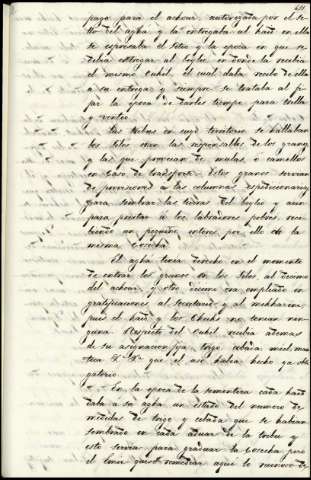 611
pago para el achour autorizada por el se
llo del agha y la entregaba al haid en ella
se espresaba el sitio y la epoca en que se
debia entregar al beylic en donde la recibia
el mismo Oukil el cual daba recibo de ella
a su entrega y siempre se trataba al fi
jar la epoca de darles tiempo para trilla
y venter
Las tribus en cuyo territorio se hallaban
los silos eran las responsables de los granos
y las que proveian de mulas o camellos
en caso de transporte. Estos granos servian
de provisiones a las columnas espedicionarias
para sembrar las tierras del beylic y aun
para prestar a los labradores pobres reci
biendo un pequeño interes por ello de la
misma cosecha
El agha tenia derecho en el momento
de entrar los granos en los silos, al decimo
del achour y otro decimo era empleado en
gratificaciones al secretario y al mekharen
pues el haid y los Cheiks no tenian nin
guna. Respecto del Oukil recibia ademas
de su asignacion fija trigo cebada miel man
teca &ª &ª que el uso habia hecho ya obli
gatorio
En la epoca de la sementera cada haid
daba a su agha un estado del numero de
medidas de trigo y cebada que se habian
sembrado en cada aduar de la tribu y
este servia para graduar la cosecha pero
el Emir quiso remediar aqui lo numero de